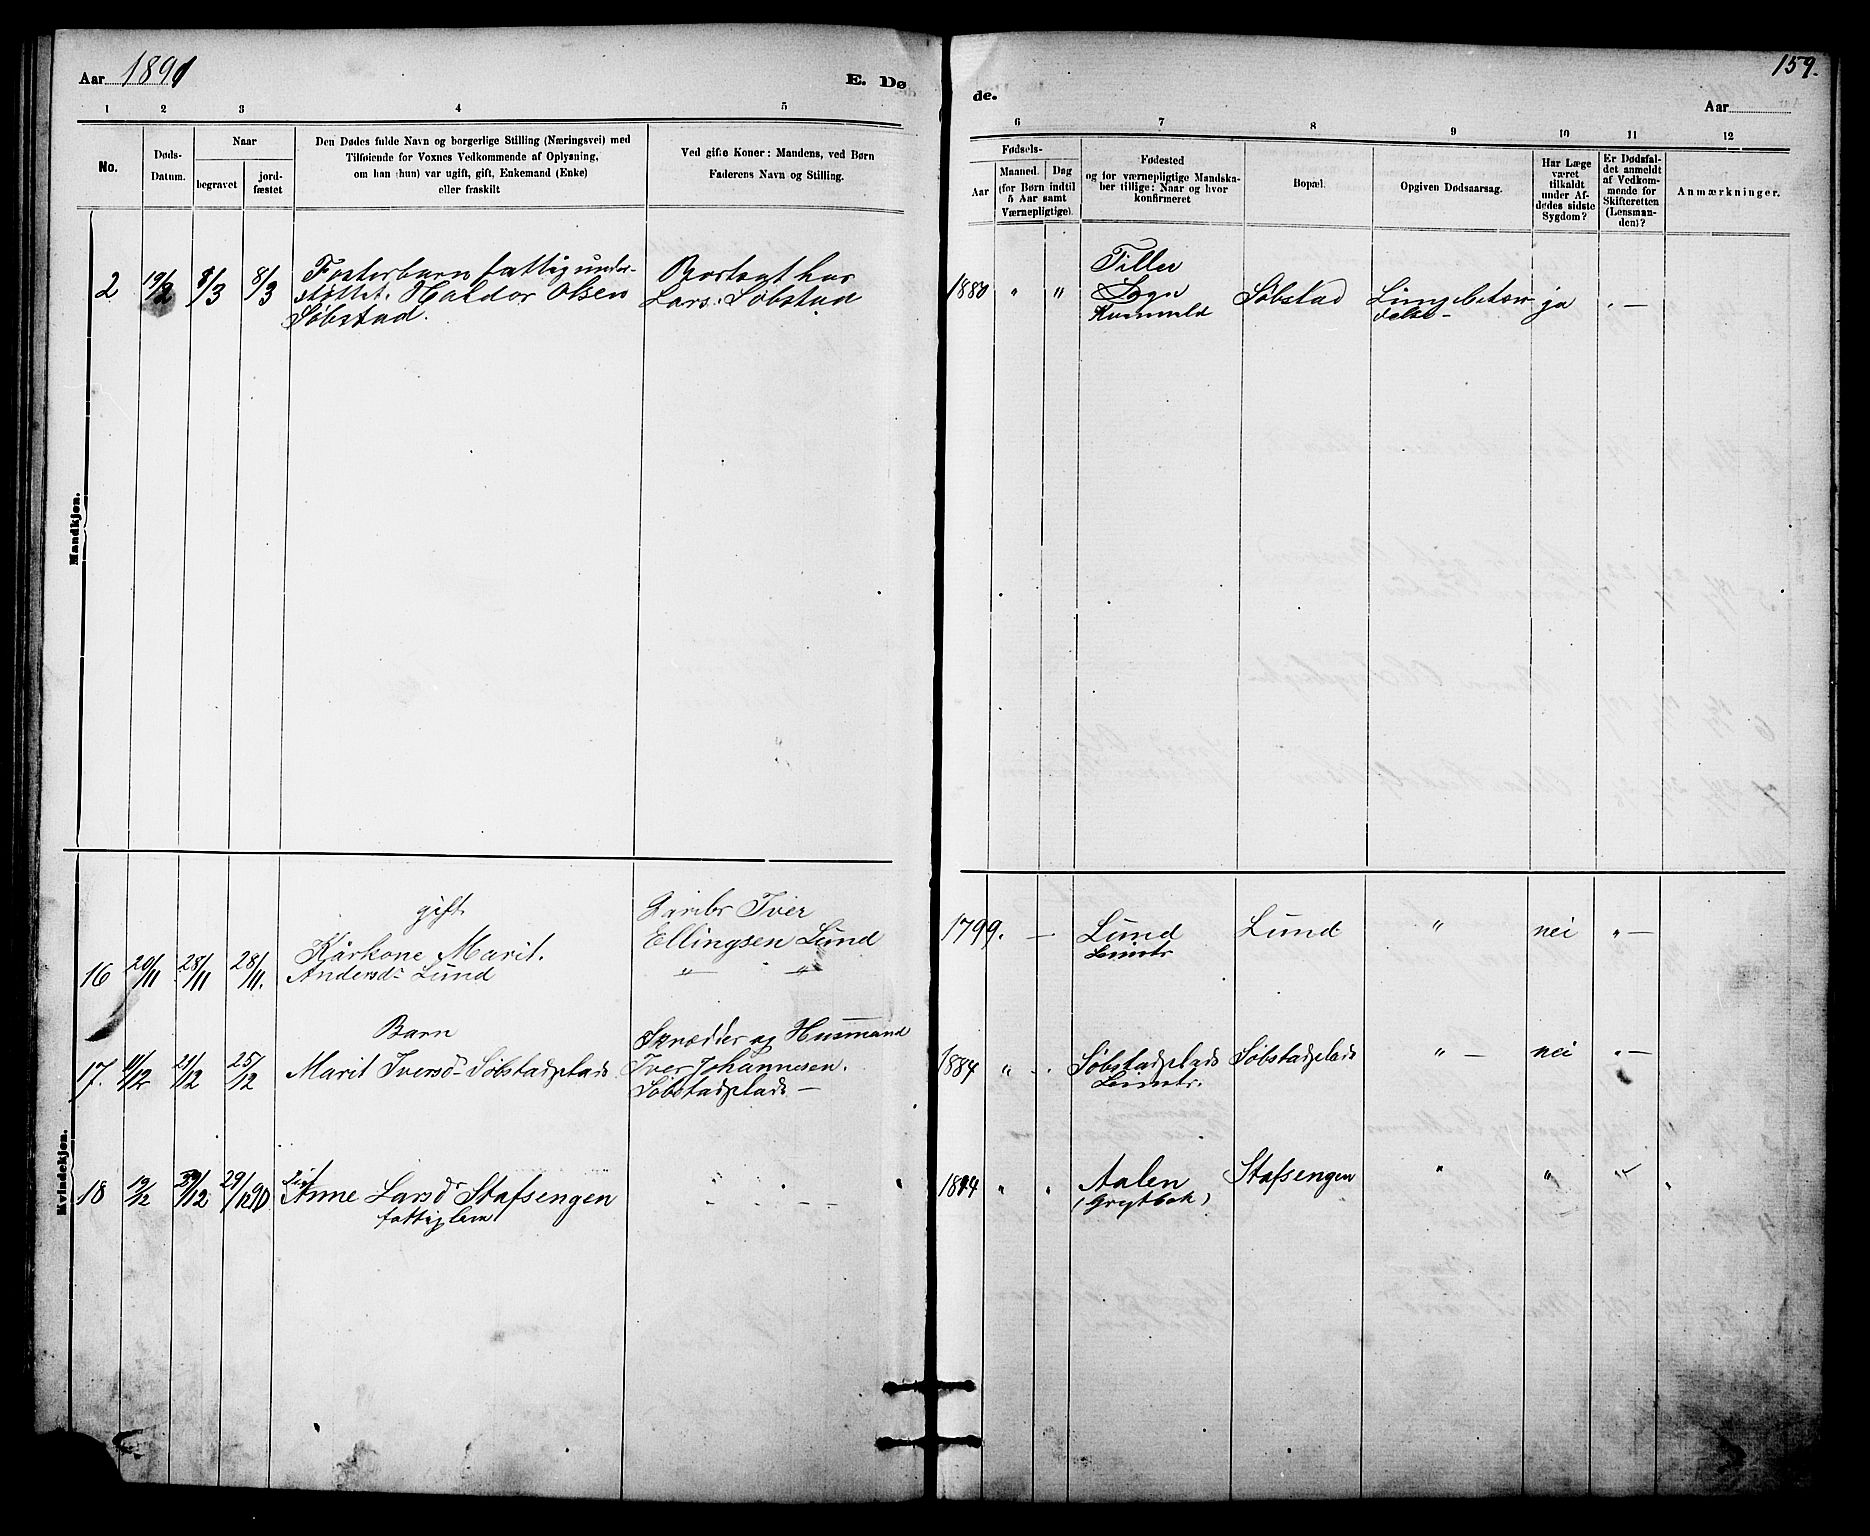 Aar 1891
E. Dø
de.
159.
Aar
1 2 3 4 5
6 7 8 9 10 11 12
No.
Døds-
Datum.
Naar
begravet
jord-
fæstet
Den Dødes fulde Navn og borgerlige Stilling (Næringsvei) med
Tilføiende for Voxnes Vedkommende af Oplysning,
om han (hun) var ugift, gift, Enkemand (Enke)
eller fraskilt
Ved gifte Koner: Mandens, ved Børn
Faderens Navn og Stilling.
Fødsels-
Aar
Maaned.
Dag
(for Børn indtil
5 Aar samt
Værnepligtige).
Fødested
og for værnepligtige Mandska-
ber tillige: Naar og hvor
konfirmeret
Bopæl.
Opgiven Dødsaarsag.
Har Læge
været
tilkaldt
under Af-
dødes sidste
Sygdom?
Er Dødsfal-
det anmeldt
af Vedkom-
mende for
Skifteretten
(Lensman-
den)?
Anmærkninger.
Mandkjøn.
2 19/2 8/3 8/3
Fosterbarn fattigunder-
støttet. Haldor Olsen
Søbstad.
Bortsat hos
Lars Søbstad
1880 " "
Tiller
Sogn
Søbstad
Lungebetæn-
delse-
ja
" —
Kvindekjøn.
gift
16 20/11 28/11 28/11.
Kårkone Marit.
Andersd- Lund
Iver
Ellingsen Lund
" "
1799. —
Lund
Leinstr
Lund
"
nei
" —
Barn
17. 11/12 21/12 25/12
Marit Iversd- Søbstadplads
Skrædder og Husmand
Iver Johannesen.
Søbstadplads —
1884 " -
Søbstadplads
Leinstr.
Søbstadplads
" —
nei
" —
18 19/12 29/12 29/12 90.
Anne Larsdr Stafsengen
fattiglem
" "
Aalen
(Grytbak)
Stafsengen
"
"
"